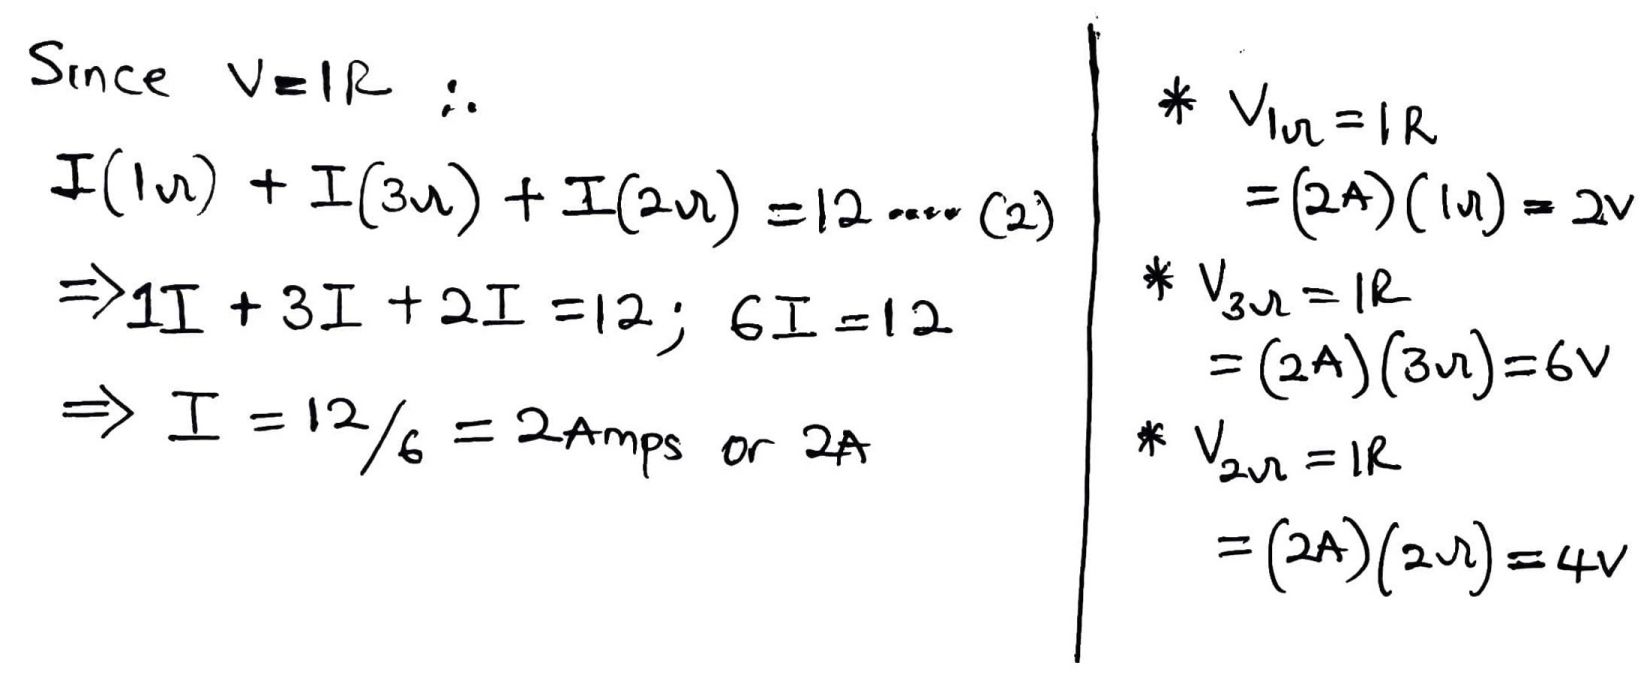 Since V=IR ∴
I(1Ω) + I(3Ω) + I(2Ω) =12 ..... (2)
⇒1I + 3I + 2I =12; 6I =12
⇒ I = 12/6 = 2Amps or 2A
* V1Ω = IR
= (2A)(1Ω) = 2V
* V3Ω = IR
= (2A)(3Ω) = 6V
* V2Ω = IR
= (2A)(2Ω) = 4V